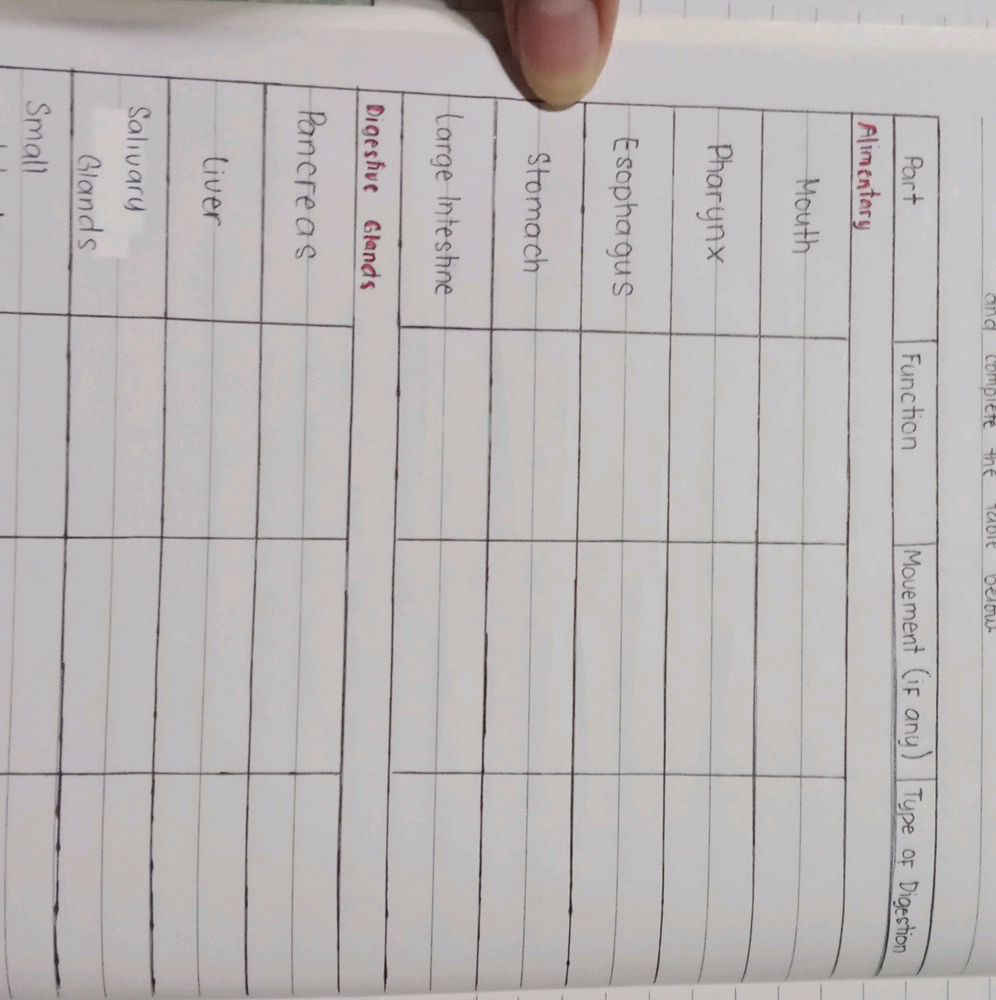 and complete the table below
Part Function Movement (if any) Type of Digestion
Alimentary
Mouth
Pharynx
Esophagus
Stomach
Large Intestine
Digestive Glands
Pancreas
Liver
Salivary
Glands
Small